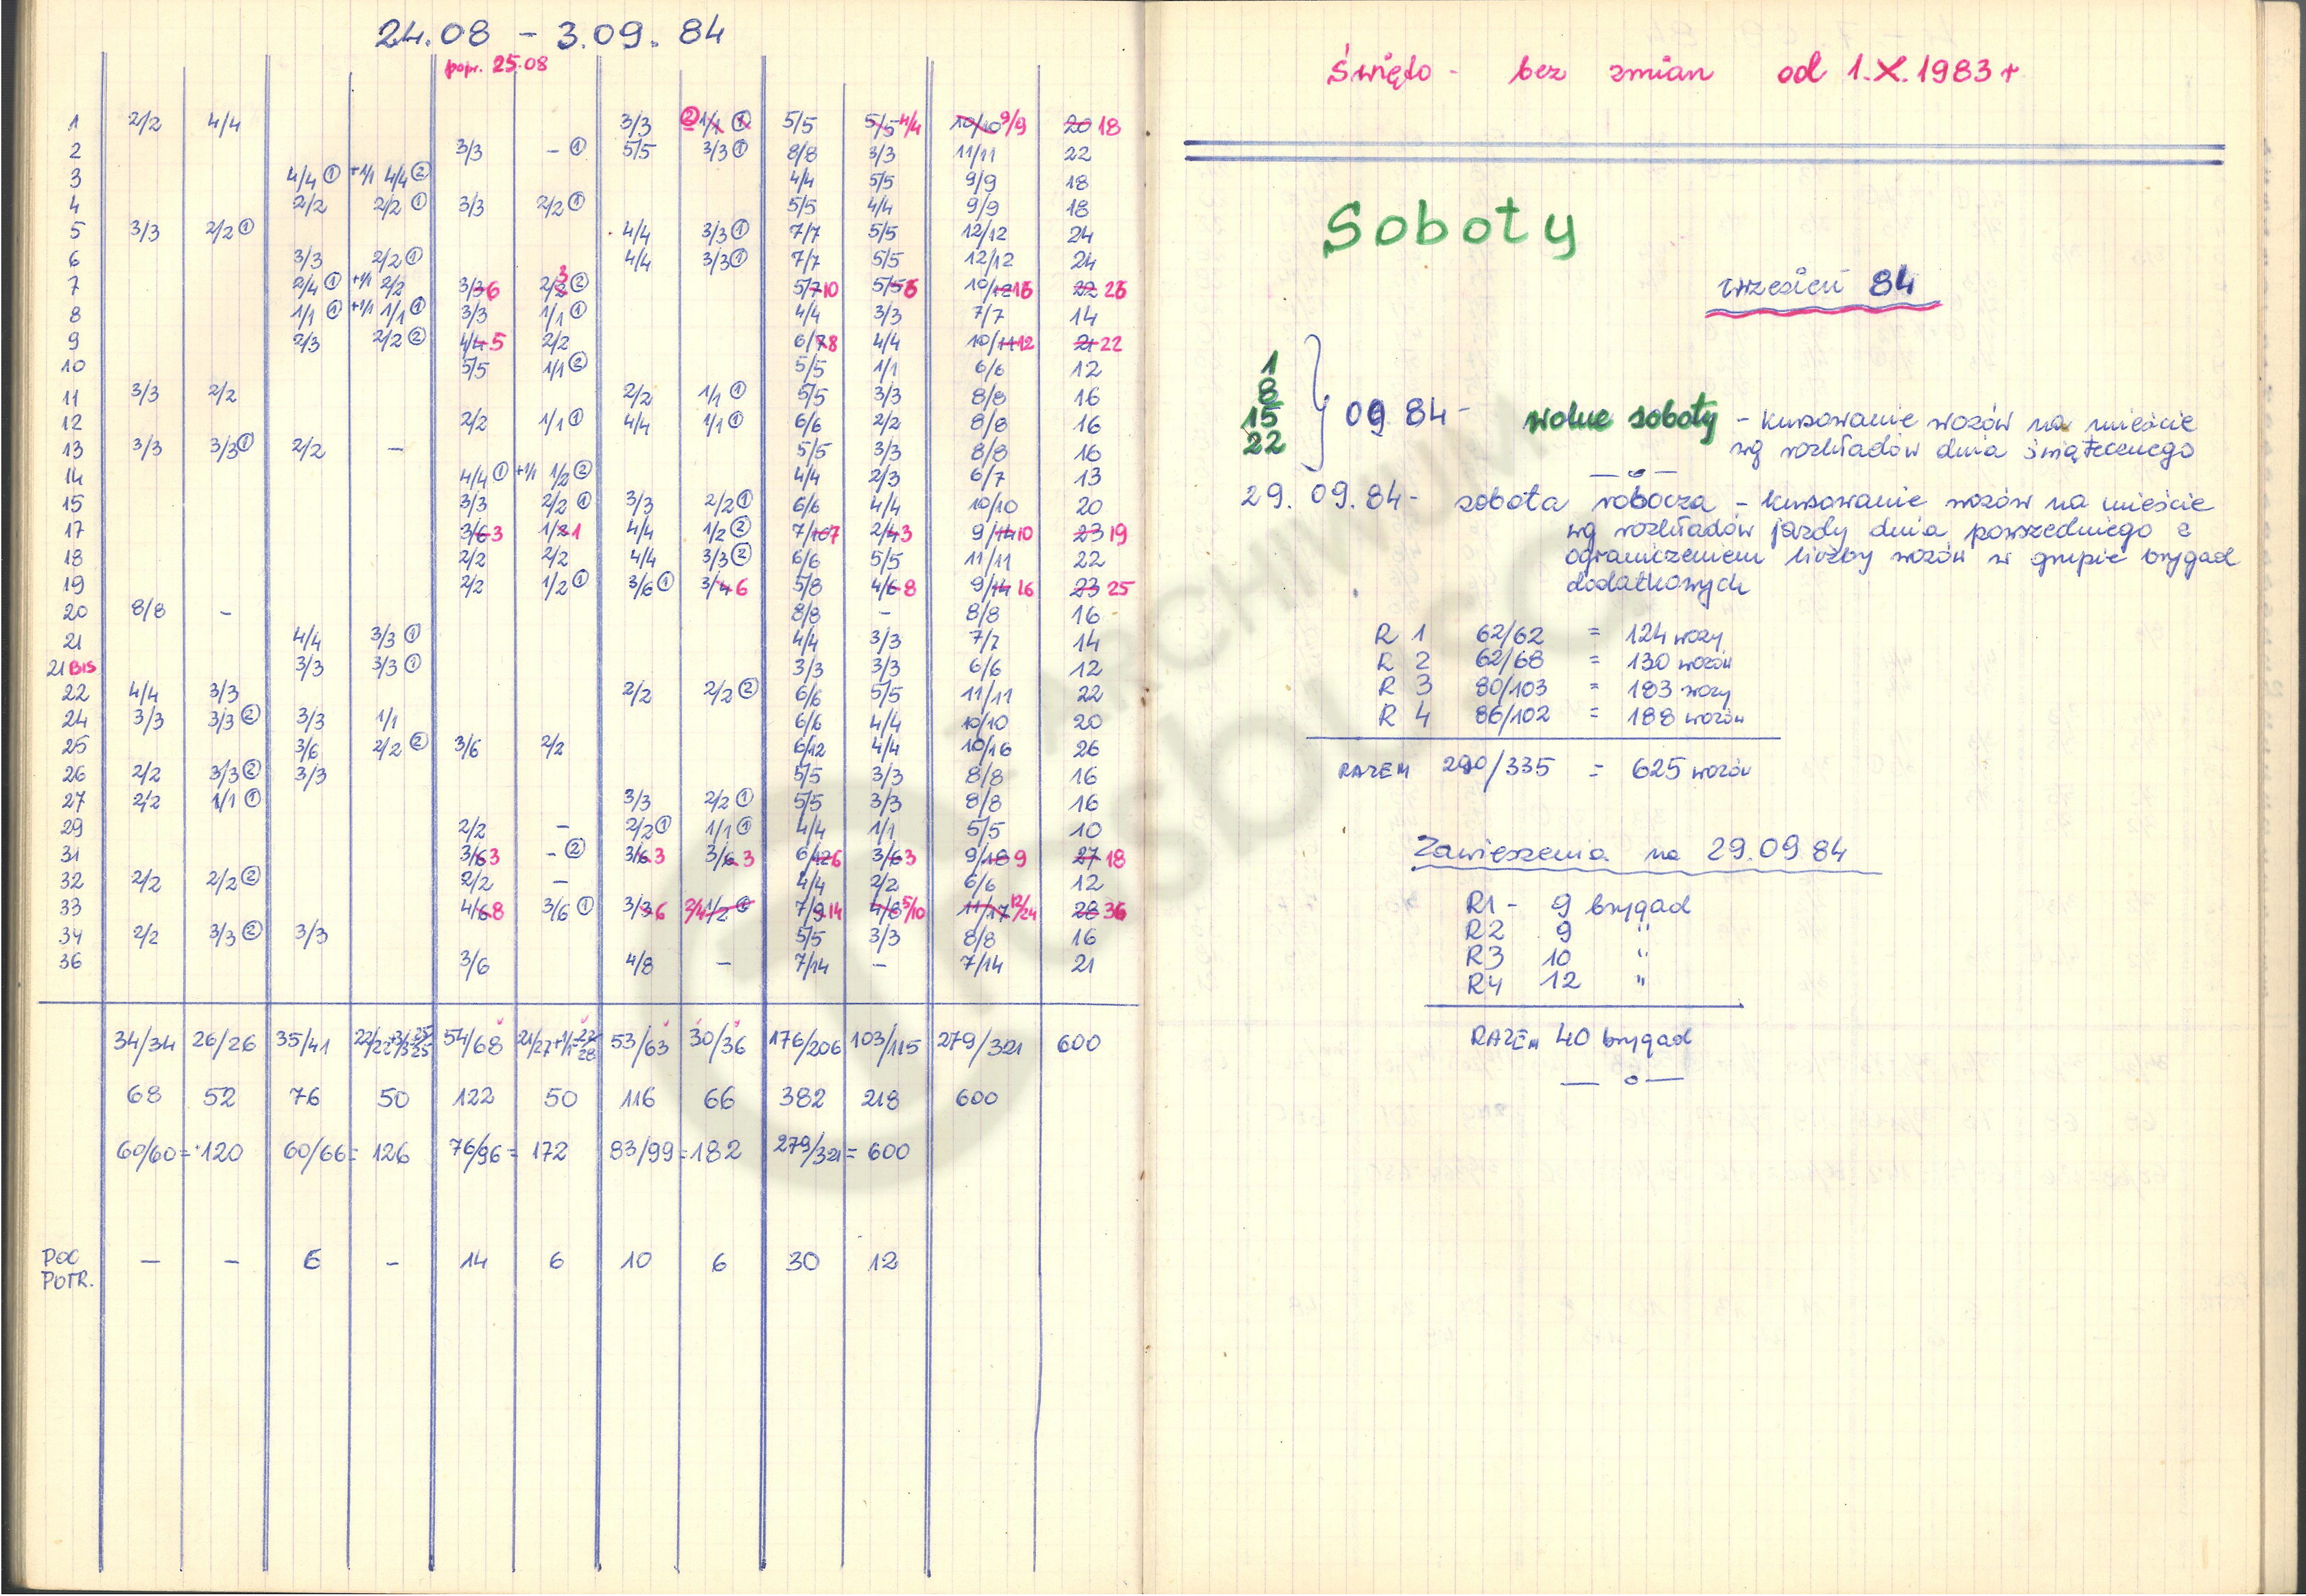 24.08 - 3.09.84
popr. 25.08
1 2/2 4/4 3/3 ② 1/1 ① 5/5 5/5 4/4 10/10 9/9 20 18
2 3/3 - ① 5/5 3/3 ① 8/8 3/3 11/11 22
3 4/4 ① +1/1 4/4 ② 4/4 5/5 9/9 18
4 2/2 2/2 ① 3/3 2/2 ① 5/5 4/4 9/9 18
5 3/3 2/2 ① 4/4 3/3 ① 7/7 5/5 12/12 24
6 3/3 2/2 ① 4/4 3/3 ① 7/7 5/5 12/12 24
7 2/4 ① +1/1 2/2 3/3 6 2/2 3 ② 5/7 10 5/5 6 10/12 16 22 26
8 1/1 ① +1/1 1/1 ① 3/3 1/1 ① 4/4 3/3 7/7 14
9 2/3 2/2 ② 4/4 5 2/2 6/7 8 4/4 10/11 12 21 22
10 5/5 1/1 ② 5/5 1/1 6/6 12
11 3/3 2/2 2/2 1/1 ① 5/5 3/3 8/8 16
12 2/2 1/1 ① 4/4 1/1 ① 6/6 2/2 8/8 16
13 3/3 3/3 ① 2/2 - 5/5 3/3 8/8 16
14 4/4 ① +1/1 1/2 ② 4/4 2/3 6/7 13
15 3/3 2/2 ① 3/3 2/2 ① 6/6 4/4 10/10 20
17 3/6 3 1/2 1 4/4 1/2 ② 7/10 7 2/4 3 9/14 10 23 19
18 2/2 2/2 4/4 3/3 ② 6/6 5/5 11/11 22
19 2/2 1/2 ① 3/6 ① 3/4 6 5/8 4/6 8 9/14 16 23 25
20 8/8 - 8/8 - 8/8 16
21 4/4 3/3 ① 4/4 3/3 7/7 14
21 BIS 3/3 3/3 ① 3/3 3/3 6/6 12
22 4/4 3/3 2/2 2/2 ② 6/6 5/5 11/11 22
24 3/3 3/3 ② 3/3 1/1 6/6 4/4 10/10 20
25 3/6 2/2 ② 3/6 2/2 6/12 4/4 10/16 26
26 2/2 3/3 ② 3/3 5/5 3/3 8/8 16
27 2/2 1/1 ① 3/3 2/2 ① 5/5 3/3 8/8 16
29 2/2 - 2/2 ① 1/1 ① 4/4 1/1 5/5 10
31 3/6 3 - ② 3/6 3 3/6 3 6/12 6 3/6 3 9/18 9 27 18
32 2/2 2/2 ② 2/2 - 4/4 2/2 6/6 12
33 4/6 8 3/6 ① 3/3 6 2/4 1/2 ① 7/9 14 4/8 5/10 11/17 12/24 28 36
34 2/2 3/3 ② 3/3 5/5 3/3 8/8 16
36 3/6 4/8 - 7/14 - 7/14 21
34/34 26/26 35/41 22/22+3/3 25/25 54/68 21/27+1/1= 22/28 53/63 30/36 176/206 103/115 279/321 600
68 52 76 50 122 50 116 66 382 218 600
60/60 = 120 60/66 = 126 76/96 = 172 83/99 = 182 279/321 = 600
POC - - 6 - 14 6 10 6 30 12
POTR.
Święto - bez zmian od 1.X.1983 r
Soboty
wrzesień 84
1
8
15
22
09 84 - wolne soboty - kursowanie wozów na mieście
wg rozkładów dnia świątecznego
29. 09. 84 - sobota robocza - kursowanie wozów na mieście
wg rozkładów jazdy dnia powszedniego z
ograniczeniem liczby wozów w grupie brygad
dodatkowych
R 1 62/62 = 124 wozy
R 2 62/68 = 130 wozów
R 3 80/103 = 183 wozy
R 4 86/102 = 188 wozów
RAZEM 290/335 = 625 wozów
Zawieszenia na 29.09 84
R1 - 9 brygad
R2 9 "
R3 10 "
R4 12 "
RAZEM 40 brygad